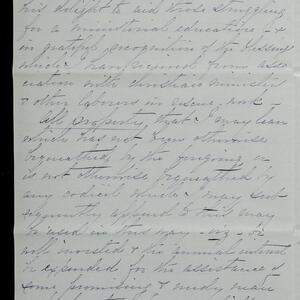 his delight to aid those struggling
for a ministerial education - &
in grateful recognition of the blessing
which I have received from asso
ciation with christian ministry
& other laborers in work -
All property that I may leave
which has not been otherwise
bequeathed by the foregoing or
is not otherwise bequeathed by
any codicil which I may sub
sequently append to this may
be used in this way - viz -
well invested & the annual interest
be expended for the assistance of
some promising & needy